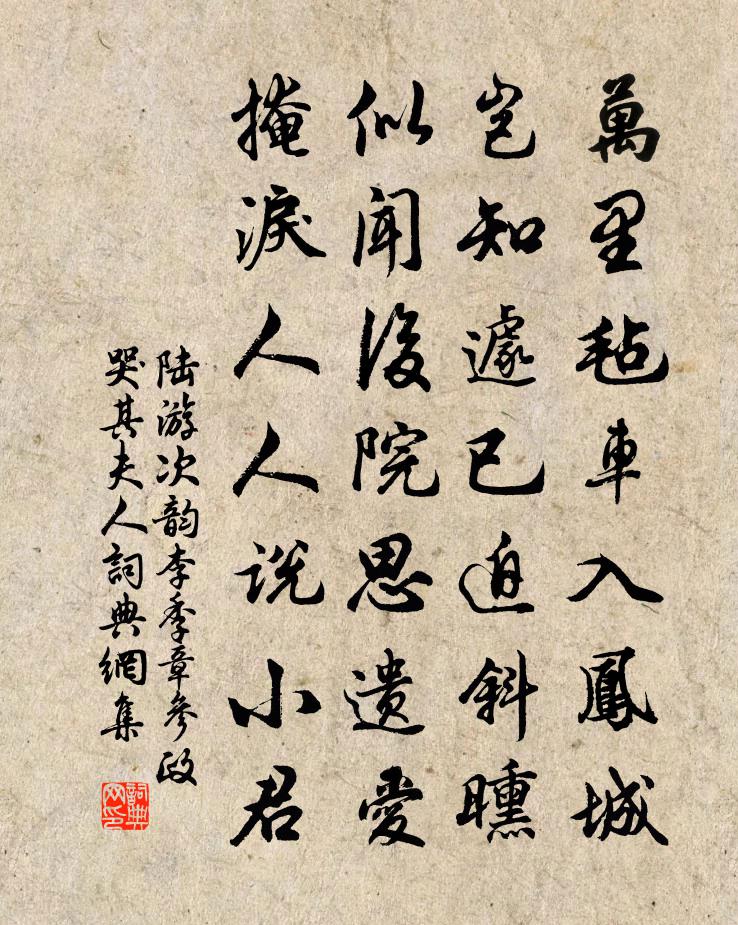 萬里毡車入鳳城
豈知遽已迫斜曛
似聞後院思遺愛
掩淚人人說小君
陆游次韵李季章参政
哭其夫人詞典網集
詞典网印